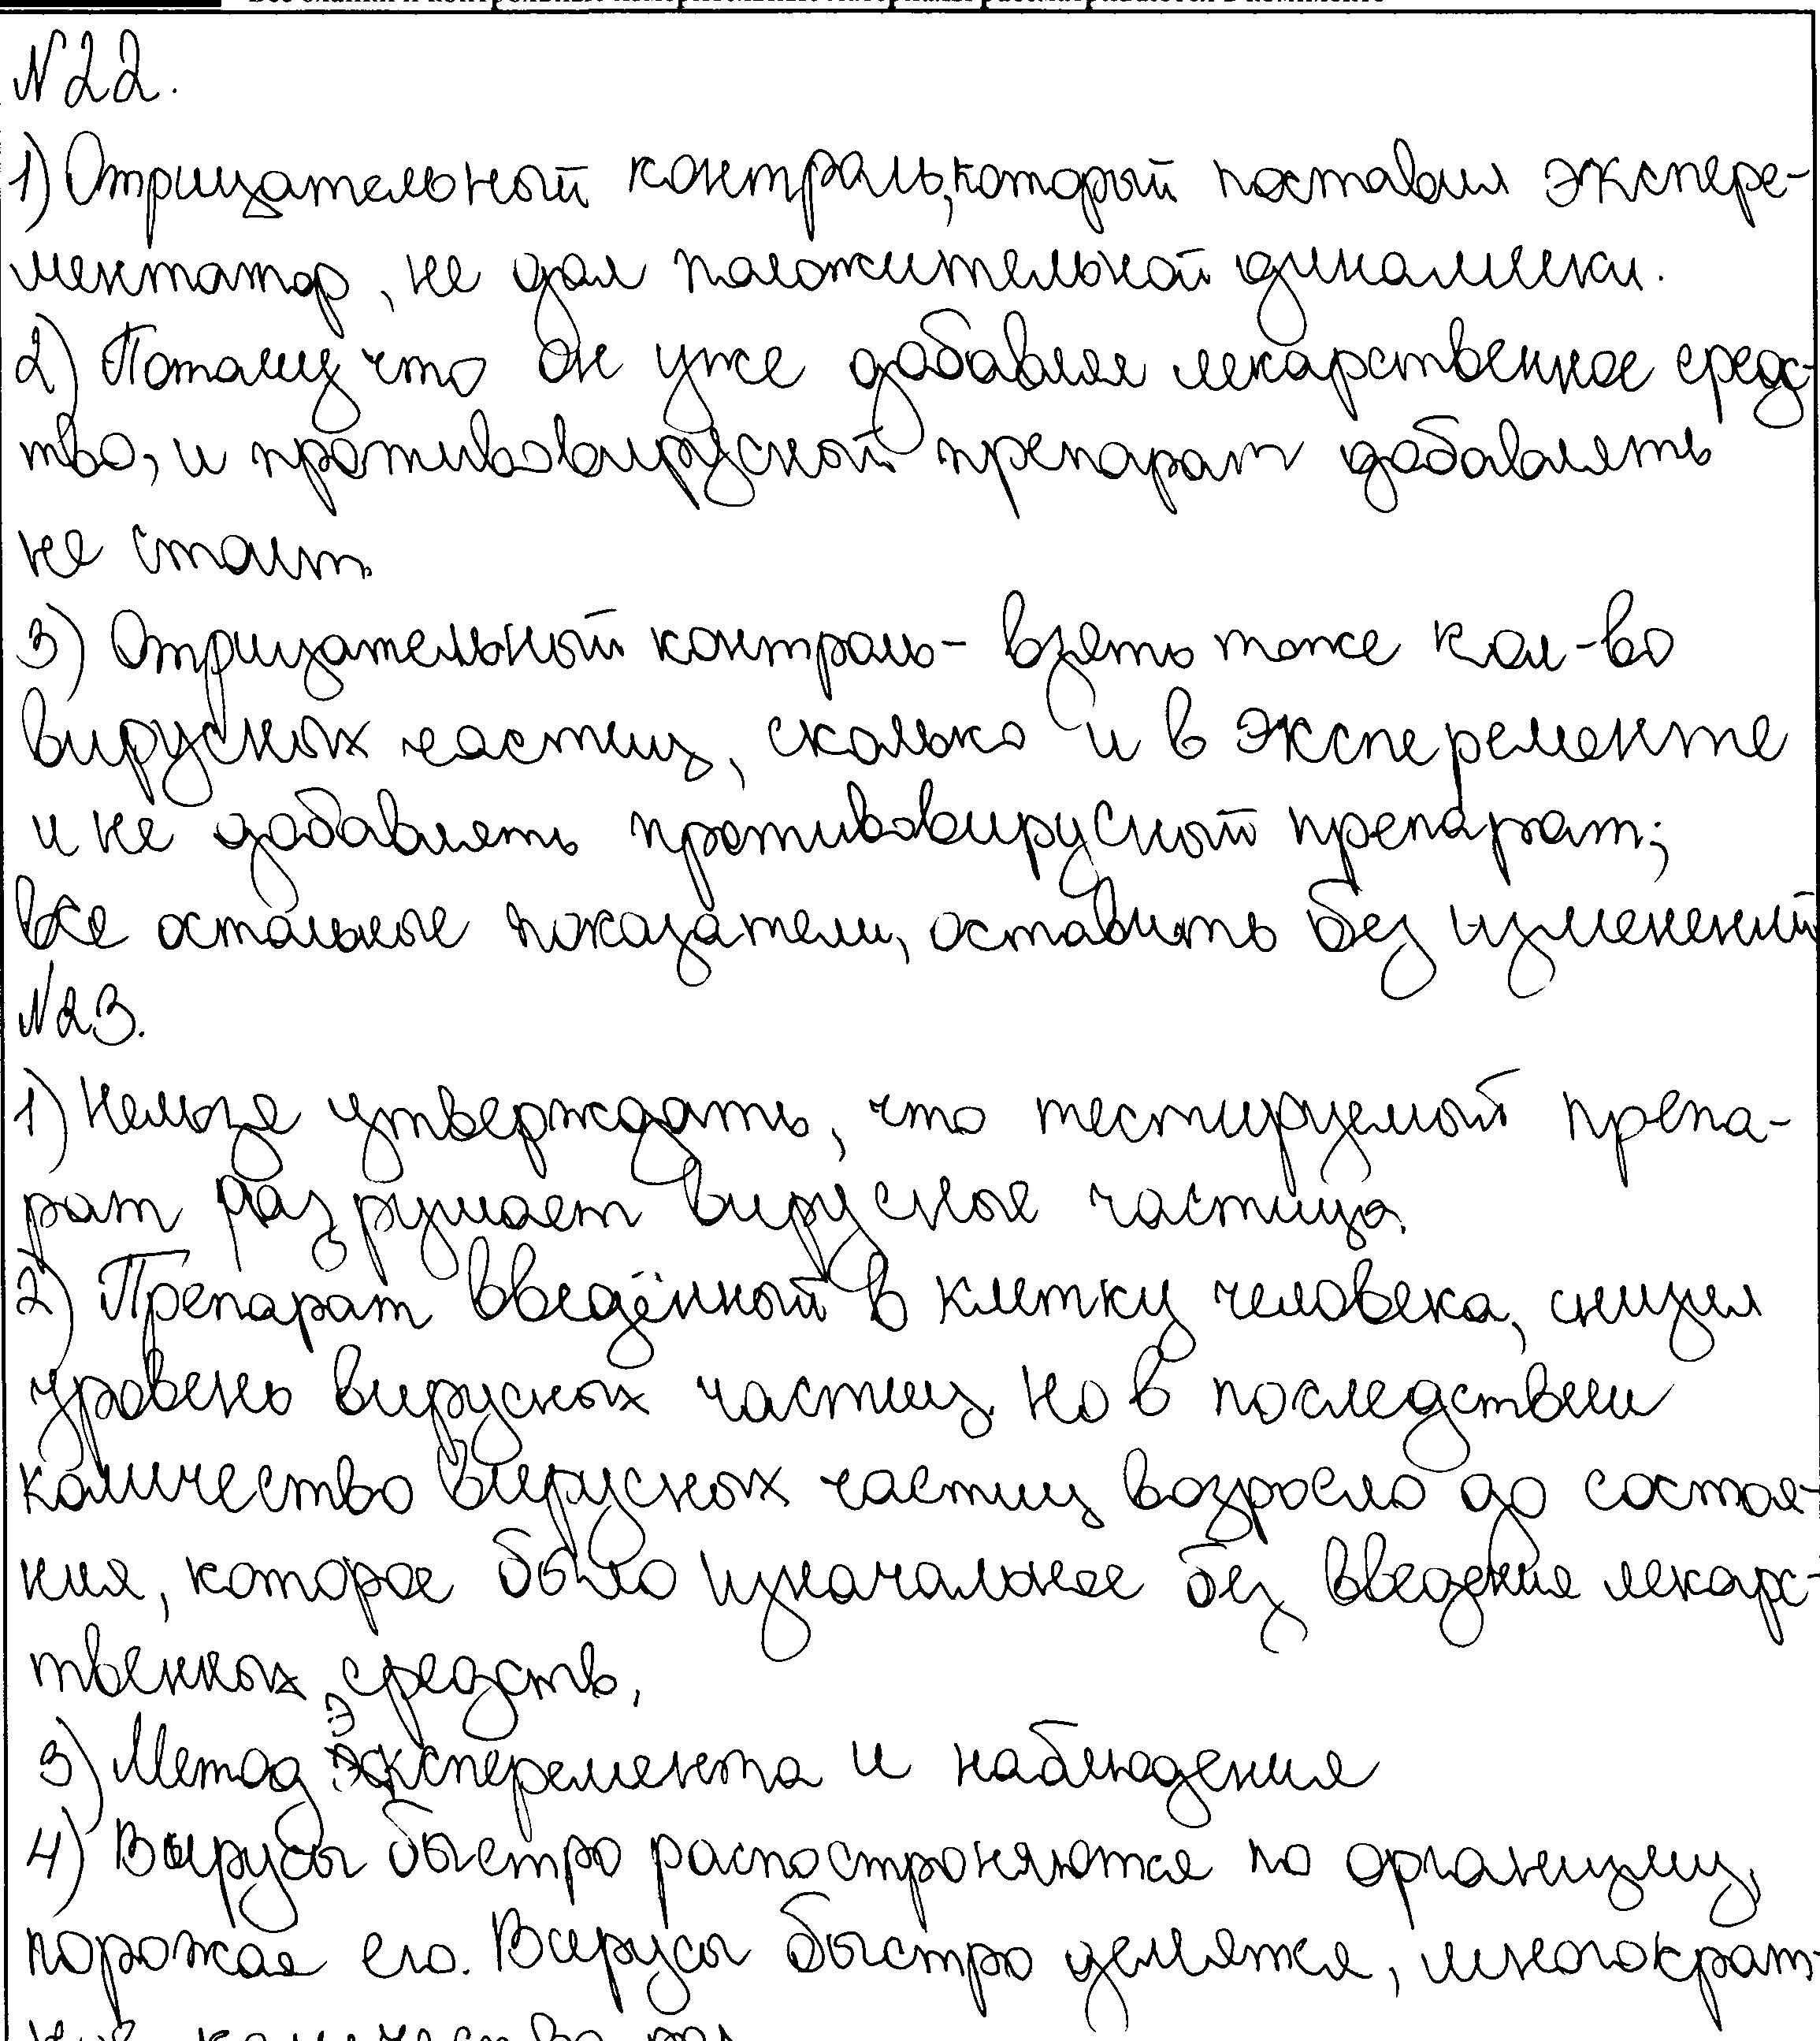 №22.
1) Отрицательный контроль, который поставил экспере-
ментатор, не дал положительной динамики.
2) Потому что он уже добавлял лекарственное средс-
тво, и противовирусной препарат добавлять
не стоит.
3) Отрицательный контроль - взять тоже кол-во
вирусных частиц, сколько и в эксперементе
и не добавлять противовирусной препарат;
все остальные показатели, оставить без изменений
№23.
1) Нельзя утверждать, что тестируемой препа-
рат разрушает вирусные частицы.
2) Препарат введённый в клетку человека, снизил
уровень вирусных частиц но в последствии
количество вирусных частиц возросло до состоя-
ния, которое было изначальное без введения лекарс-
твенных средств.
3) Метод эксперемента и наблюдения
4) Вирусы быстро распостроняются по организму,
порожая его. Вирусы быстро делятся, многократ-